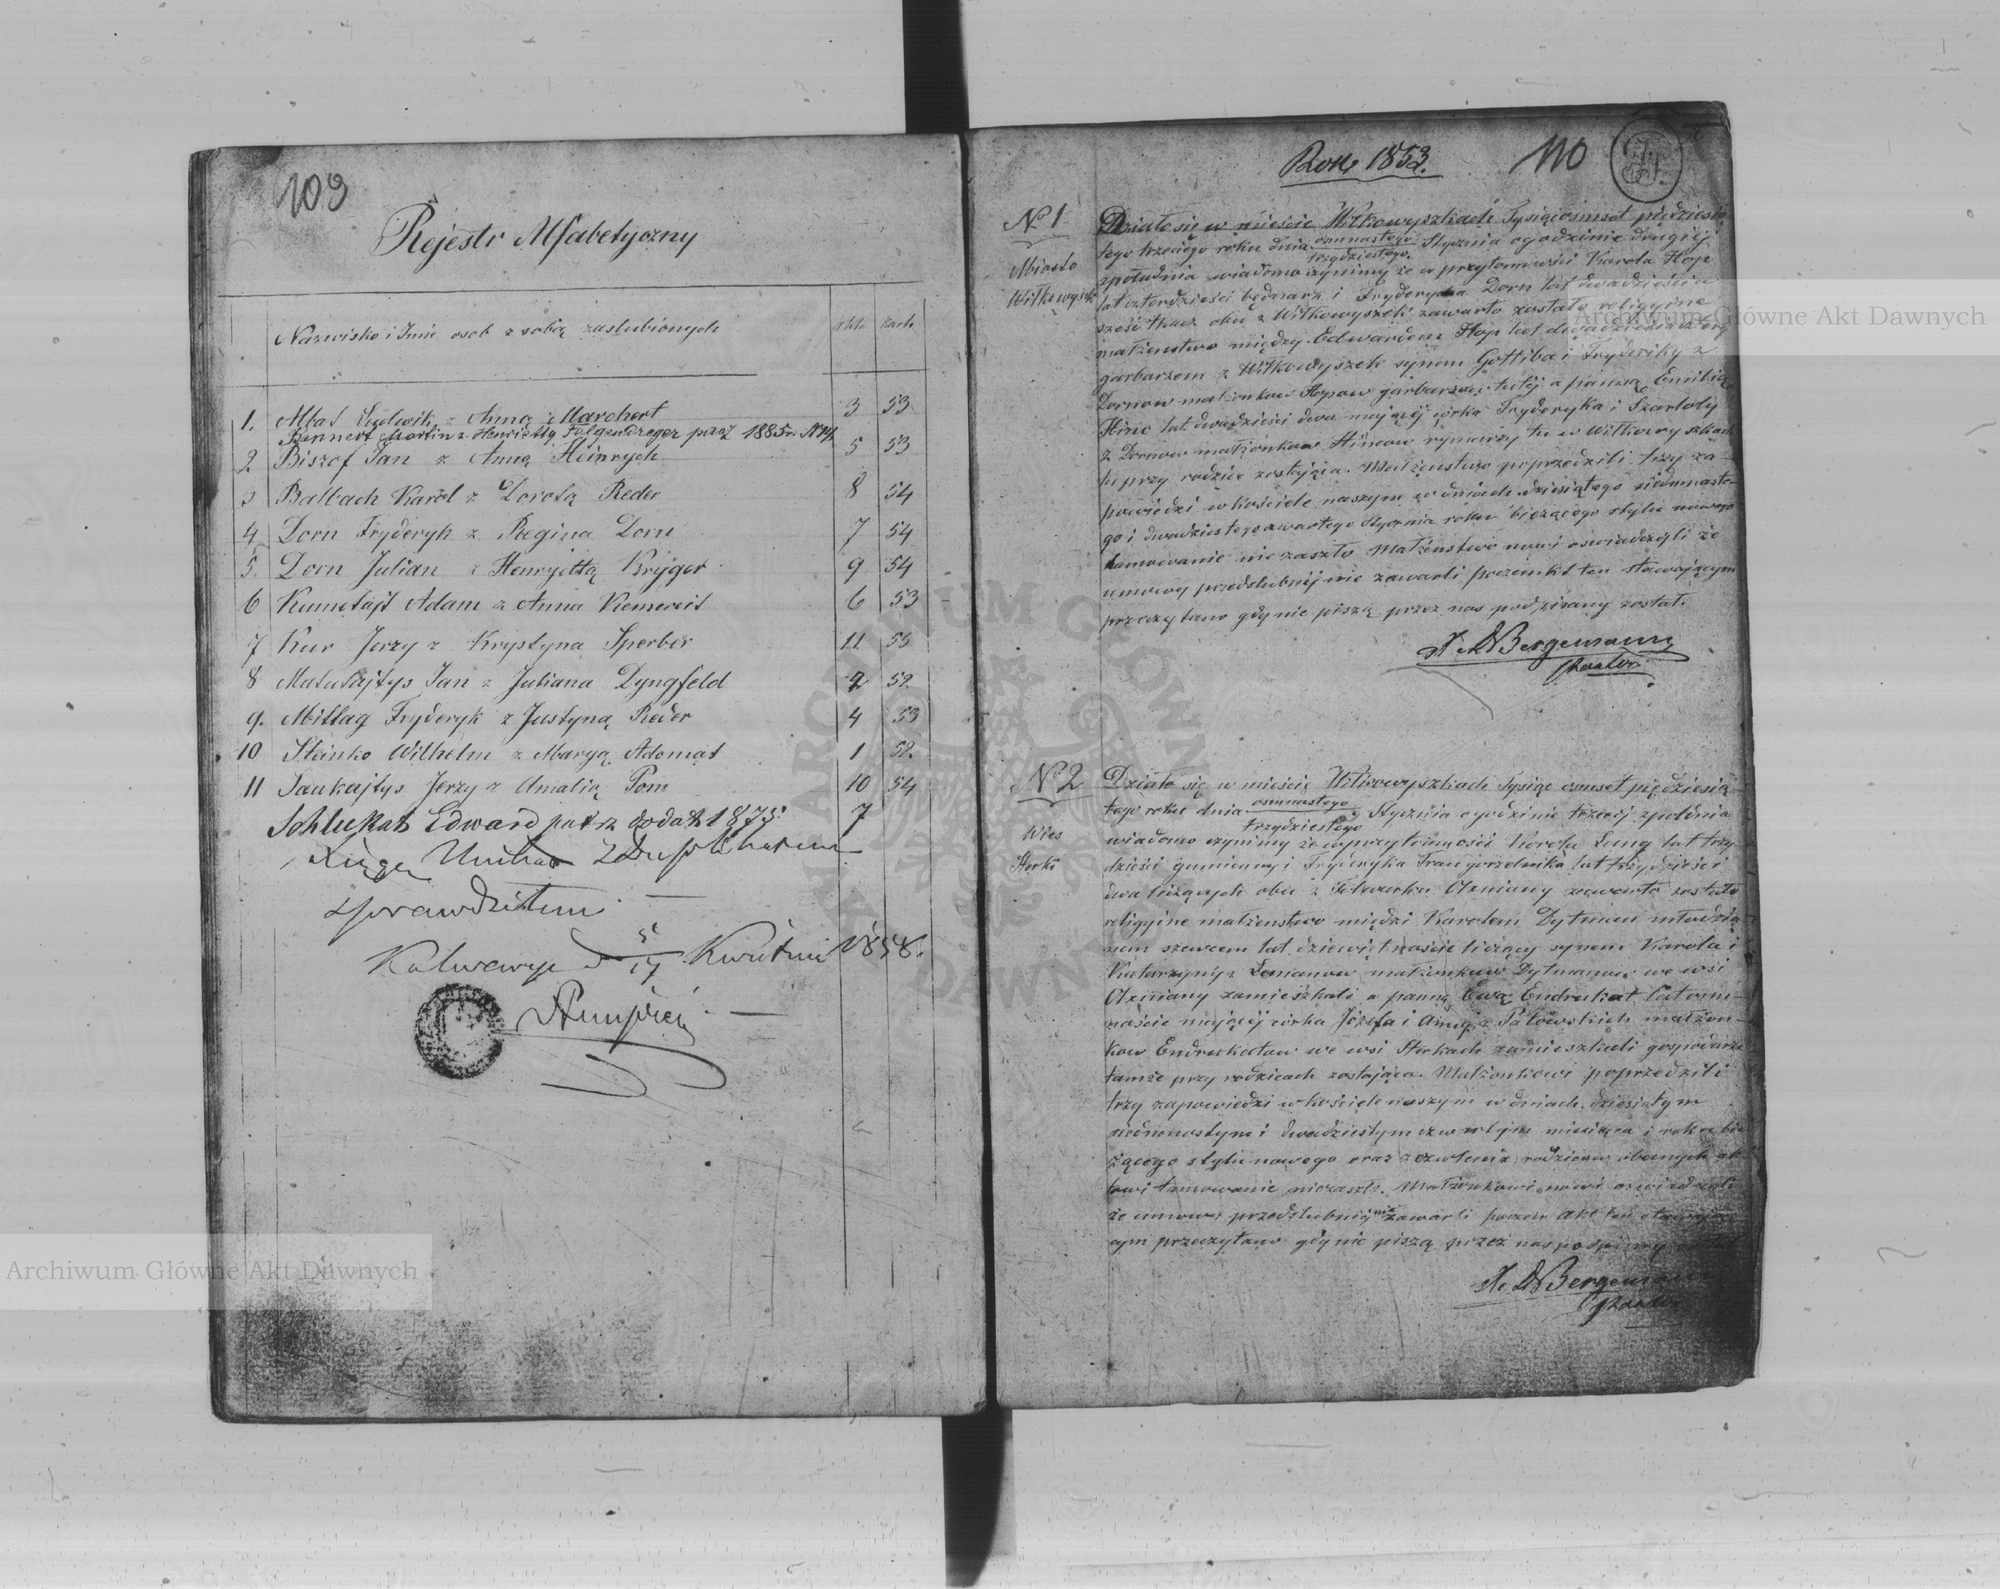 109
Rejestr Alfabetyczny
Nazwisko i Imie osob z sobą zaslubionych akta karta
1. Albat Ludwik z Anną Marchert 3 53
Bennert Martin z Henriettą Folgendreger patrz 1885 r. N 14
2 Biszof Jan z Anną Heinrych 5 53
3 Balbach Karol z Dorotą Reder 8 54
4 Dorn Fryderyk z Regina Dorn 7 54
5. Dorn Julian z Henryettą Kryger 9 54
6 Adam z Anna 6 53
7 Kur Jerzy z Krystyna Sperber 11 55
8 Matulajtys Jan z Juliana Dyngfeld 2 52
9. Mittag Fryderyk z Justyną Reder 4 53
10 Steinke Wilhelm z Maryą Adomat 1 52.
11 Saukajtys Jerzy z Amalią Pom 10 54
Schlukat Edward patrz dodat. 1873. 7
Księgę z Duplikatem
sprawdziłem
Kalwarya d 5/17 Kwietnia 1858.
Rok 1853. 110
N 1
Miasto
Wiłkowyszki
Działo się w mieście Wiłkowyszkach Tysiąc osmset pięćdziesią
tego trzeciego roku dnia osmnastego / trzydziestego Stycznia o godzinie drugiej
z południa wiadomo czynimy że w przytomności Karola Hop
lat czterdzieści bednarz i Fryderyka Dorn lat dwadzieścia
sześć tkacz obu z Wiłkowyszek zawarte zostało religijne
małżenstwo między Edwardem Hop lat dwadzieścia
garbarzem z Wiłkowyszek synem Gottliba i Fryderiky z
Dornow małżonkow Hopow garbarzy tutej a panną Emilią
Hinc lat dwadzieści dwa mającej córka Fryderyka i Szarloty
z Dornow małżonkow Hincow rymarzy tu w Wiłkowyszkach
tu przy rodzicach zostająca. Małżenstwo poprzedzili trzy za-
powiedzi w kościele naszym w dniach dziesiątego siedmnaste-
go i dwudziestego czwartego Stycznia roku bieżącego stylu nowego
tamowanie nie zaszło Małżenstwo nowi oswiadczyli że
umowy przedslubnij nie zawarli poczem Akt ten stawającym
przeczytano gdy nie piszą przez nas podpisany został.
Bergemann
Pastor
N 2
Wies
Sterki
Działo się w mieście Wiłkowyszkach Tysiąc osmset pięćdziesią-
tego roku dnia osmnastego / trzydziestego Stycznia o godzinie trzeciej z południa
wiadomo czynimy że w przytomności Karola Lang lat trzy
dzieści gumienny i Fryderyka Frau gorzelnika lat trzydzieści
dwa liczących obu z Folwarku Ożniany zawarte zostało
religijne małżenstwo między Karolem Dytman młodzia
nem szewcem lat dziewiętnaście liczący synem Karola i
Katarzyny z Lemanow małżonkow Dytmanow we wsi
Ożniany zamieszkali a panną Ewą Endrukat lat osm-
naście mającej córka Józefa i Anny z Palowskich małżon-
kow Endrukatow we wsi Sterkach zamieszkali gospodarze
tamże przy rodzicach zostająca. Małżonkowi poprzedzili
trzy zapowiedzi w kościele naszym w dniach dziesiątym
siedmnastym i dwudziestym czwartym miesiąca i roku bie
żącego stylu nowego oraz zezwolenia rodziców obecnych ak
towi tamowanie nie zaszło. Małżonkowi nowi oswiadczyli
że umowy przedslubnij nie zawarli poczem Akt ten stawają-
cym przeczytano gdy nie piszą przez nas podpisany
Bergemann
Pastor
Archiwum Główne Akt Dawnych
Archiwum Główne Akt Dawnych
ARCHIWUM GŁÓWNE AKT DAWNYCH